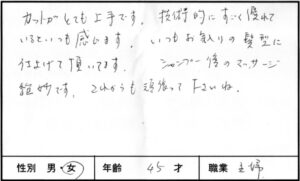 カットがとても上手です。技術的にすごく優れて
いるといつも感じます。いつもお気に入りの髪型に
仕上げて頂いてます。シャンプー後のマッサージ
絶妙です。これからも頑張って下さいね。
性別 男・女 年齢 45才 職業 主婦